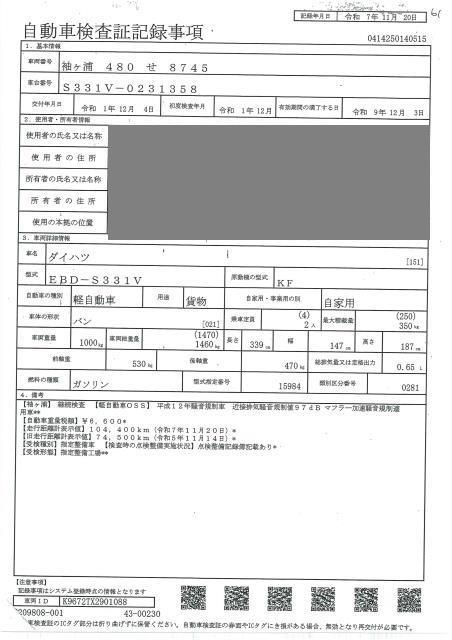 記録年月日 令和 7年11月20日
自動車検査証記録事項
0414250140515
1. 基本情報
車両番号 袖ヶ浦 480 せ 8745
車台番号 S331V-0231358
交付年月日 令和 1年12月 4日 初度検査年月 令和 1年12月 有効期間の満了する日 令和 9年12月 3日
2. 使用者・所有者情報
使用者の氏名又は名称
使用者の住所
所有者の氏名又は名称
所有者の住所
使用の本拠の位置
3. 車両詳細情報
車名 ダイハツ [151]
型式 EBD-S331V 原動機の型式 KF
自動車の種別 軽自動車 用途 貨物 自家用・事業用の別 自家用
車体の形状 バン [021] 乗車定員 (4) 2人 最大積載量 (250) 350kg
車両重量 1000kg 車両総重量 (1470) 1460kg 長さ 339cm 幅 147cm 高さ 187cm
前軸重 530kg 後軸重 470kg 総排気量又は定格出力 0.65 L
燃料の種類 ガソリン 型式指定番号 15984 類別区分番号 0281
4. 備考
【袖ヶ浦】 継続検査 【軽自動車OSS】 平成12年騒音規制車 近接排気騒音規制値97dB マフラー加速騒音規制適
用車**
【自動車重量税額】¥6,600*
【走行距離計表示値】104,400km(令和7年11月20日)*
【旧走行距離計表示値】74,500km(令和5年11月14日)*
【受検種別】指定整備車 【検査時の点検整備実施状況】点検整備記録簿記載あり*
【受検形態】指定整備工場**
【注意事項】
記録事項はシステム登録時点の情報となります
車両ID K96727X2901088
209808-001 43-00230
車検査証のICタグ部分は折り曲げずに保管ください。自動車検査証の券面やICタグにき損がある場合、無効となり再交付が必要です。